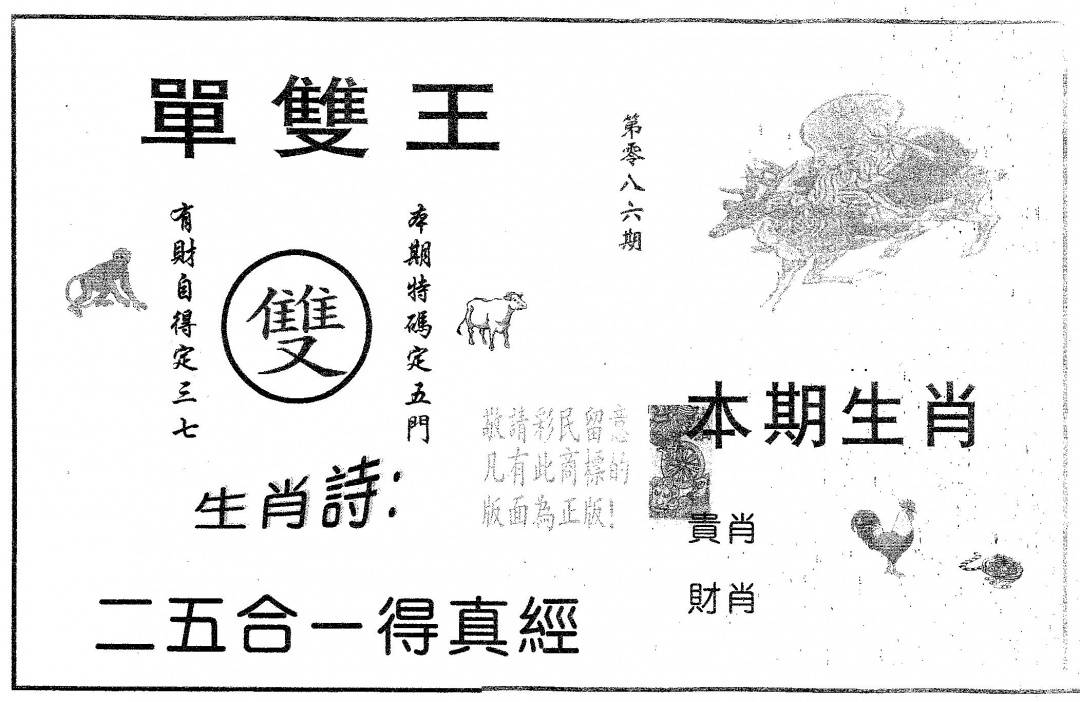 單雙王
第零八六期
本期特碼定五門
雙
有財自得定三七
敬請彩民留意
凡有此商標的
版面為正版!
本期生肖
貴肖
財肖
生肖詩:
二五合一得真經